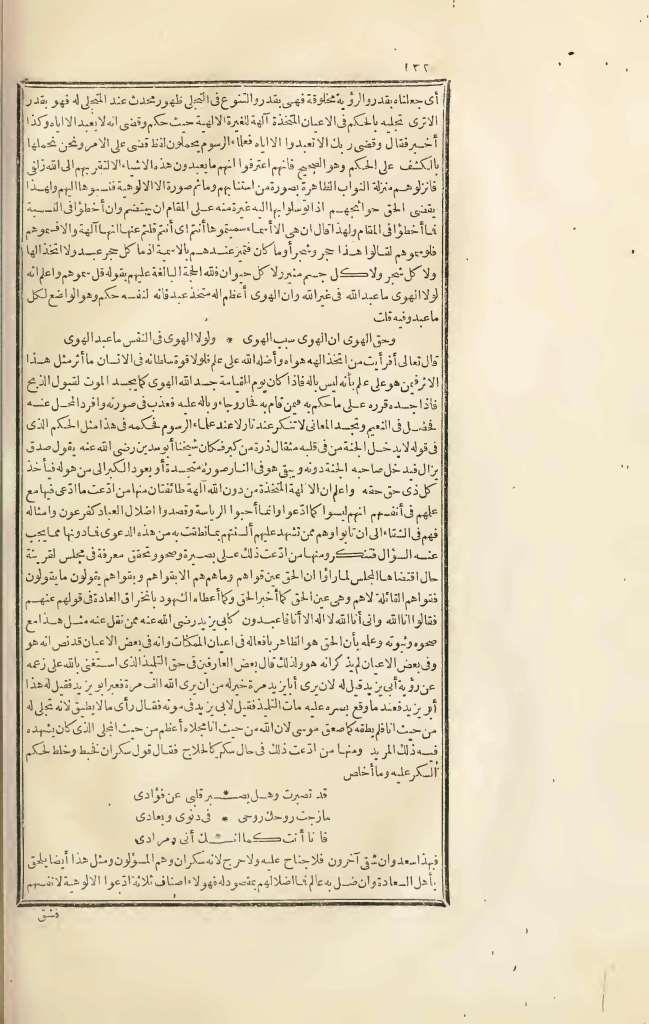 ١٣٢
أى جعلناه بقدر والرؤية مخلوقة فهى بقدر والتنوع فى التجلى ظهور محدث عند المتجلى له فهو بقدر
الاترى تجليه بالحكم فى الاعيان المتخذة آلهة للغيرة الالهية حيث حكم وقضى انه لا يعبد الا اياه وكذا
أخبر فقال وقضى ربك الا تعبدوا الا اياه فعلماء الرسوم يحملون لفظ قضى على الامر ونحن نحملها
بالكشف على الحكم وهو الصحيح فانهم اعترفوا انهم ما يعبدون هذه الاشياء الا لتقربهم الى الله زلفى
فانزلوهم منزلة النواب الظاهرة بصورة من استنابهم وما ثم صورة الا الالوهية فنسبوها اليهم ولهذا
يقضى الحق حوائجهم اذا توسلوا بها اليه غيرة منه على المقام ان يهتضم وان أخطؤا فى النسبة
فما أخطؤا فى المقام ولهذا قال ان هى الا أسماء سميتموها أنتم أى أنتم قلتم عنها انها آلهة والا فسموهم
فلو سموهم لقالوا هذا حجر وشجر أو ما كان فتميز عندهم بالاسمية اذ ما كل حجر عبد ولا اتخذ الها
ولا كل شجر ولا كل جسم منير ولا كل حيوان فلله الحجة البالغة عليهم بقوله قل سموهم واعلم انه
لولا الهوى ما عبد الله فى غير الله وان الهوى أعظم اله متخذ عبد فانه لنفسه حكم وهو الواضع لكل
ما عبد وفيه قلت
وحق الهوى ان الهوى سبب الهوى * ولولا الهوى فى النفس ما عبد الهوى
قال تعالى أفرأيت من اتخذ الهه هواه وأضله الله على علم فلولا قوة سلطانه فى الانسان ما أثر مثل هذا
الاثر فيمن هو على علم بأنه ليس باله فاذا كان يوم القيامة جسد الله الهوى كما يجسد الموت لقبول الذبح
فاذا جسده قرره على ما حكم به فيمن قام به فحار وجاء وباله عليه فعذب فى صورته وأفرد المحل عنه
فحصل فى النعيم وتجسد المعانى لا تنكر عندنا ولا عند علماء الرسوم فحكمه فى هذا مثل الحكم الذى
فى قوله لا يدخل الجنة من فى قلبه مثقال ذرة من كبر فكان شيخنا أبو مدين رضى الله عنه يقول صدق
يزال فيدخل صاحبه الجنة دونه ويبقى هو فى النار صورة متجسدة أو يعود الكبر الى من هو له فيأخذ
كل ذى حق حقه واعلم ان الآلهة المتخذة من دون الله آلهة طائفتان منها من ادعت ما ادعى فيها مع
علمهم فى أنفسهم انهم ليسوا كما ادعوا وانما أحبوا الرياسة وقصدوا اضلال العباد كفرعون وامثاله
فهم فى الشقاء الى ان تابوا وهم ممن تشهد عليهم ألسنتهم بما نطقت به من هذه الدعوى فما دونها مما يجب
عنه السؤال فتنكر ومنها من ادعت ذلك على بصيرة وصحو وتحقق معرفة فى مجلس لقرينة
حال اقتضاها المجلس لما رأوا ان الحق عين قواهم وما هم هم الا بقواهم وبقواهم يقولون ما يقولون
فقواهم القائلة لا هم وهى عين الحق كما أخبر الحق وكما أعطاه الشهود بانخراق العادة فى قولهم عنهم
فقالوا انا الله وانى أنا الله لا اله الا أنا فاعبدون كأبى يزيد رضى الله عنه ممن نقل عنه مثل هذا مع
صحوه وثبوته وعلمه بأن الحق هو الظاهر بافعاله فى اعيان الممكنات وانه فى بعض الاعيان قد نص انه هو
وفى بعض الاعيان لم يذكر انه هو ولذلك قال بعض العارفين فى حق التلميذ الذى استغنى بالله على زعمه
عن رؤية أبى يزيد قيل له لان يرى أبا يزيد مرة خير له من ان يرى الله الف مرة فعبر ابو يزيد فقيل له هذا
أبو يزيد فعند ما وقع بصره عليه مات التلميذ فقيل لابى يزيد فى موته فقال رأى ما لا يطيق لانه تجلى له
من حيث أنا فلم يطقه كما صعق موسى لان الله من حيث انا مجلاه أعظم من حيث المجلى الذى كان يشهده
فيه ذلك المريد ومنها من ادعت ذلك فى حال سكر كالحلاج فقال قول سكران فخبط وخلط لحكم
السكر عليه وما أخلص
قد تصبرت وهل يصـ * ـبر قلبى عن فؤادى
مازجت روحك روحى * فى دنوى وبعادى
فانا أنت كما انـ * ـك أنى ومرادى
فهذا سعد وان شقى آخرون فلا جناح عليه ولا حرج لانه سكران وهم المسؤلون ومثل هذا أيضا يلحق
بأهل السعادة وان ضل به عالم فما اضلالهم بمقصود له فهؤلاء اصناف ثلاثة ادعوا الالوهية لانفسهم
فشقى